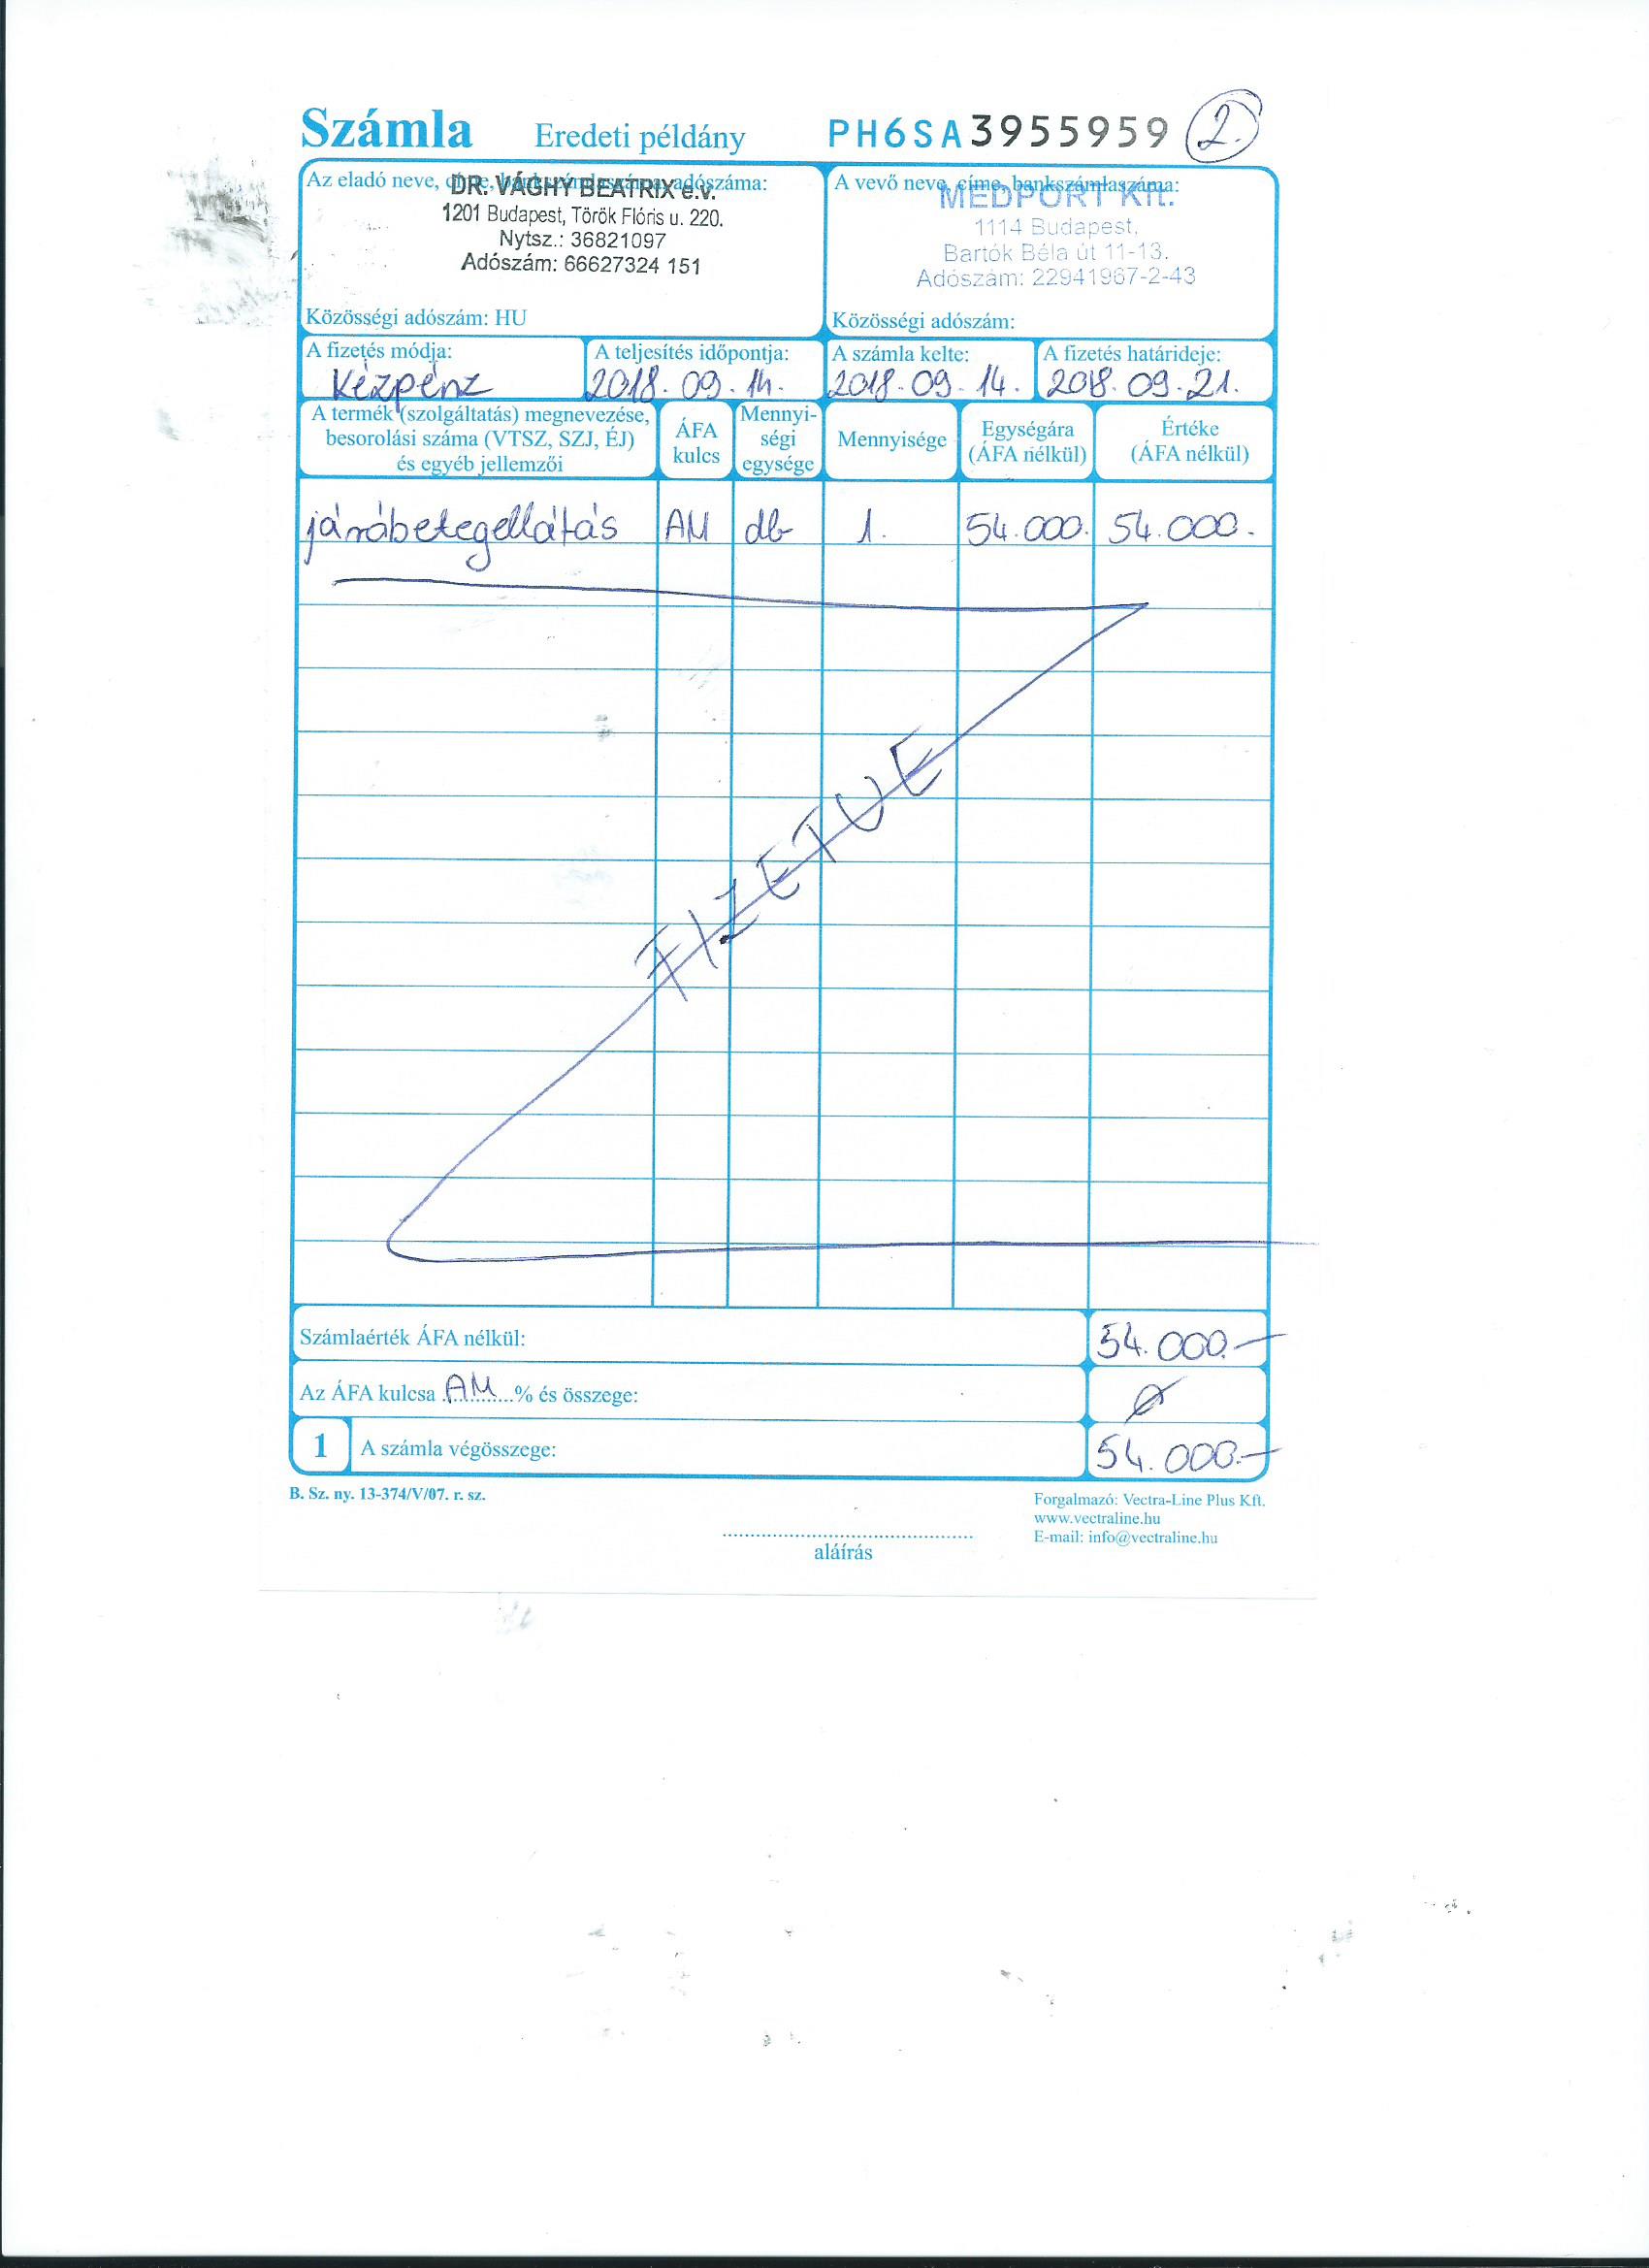 Számla Eredeti példány PH6SA3955959 2.
Az eladó neve, címe, bankszámlaszáma, adószáma:
DR. VÁGHY BEATRIX e.v.
1201 Budapest, Török Flóris u. 220.
Nytsz.: 36821097
Adószám: 66627324 151
Közösségi adószám: HU
A vevő neve, címe, bankszámlaszáma:
MEDPORT Kft.
1114 Budapest,
Bartók Béla út 11-13.
Adószám: 22941967-2-43
Közösségi adószám:
A fizetés módja: A teljesítés időpontja: A számla kelte: A fizetés határideje:
Kézpénz 2018.09.14. 2018.09.14. 2018.09.21.
A termék (szolgáltatás) megnevezése,
besorolási száma (VTSZ, SZJ, ÉJ)
és egyéb jellemzői
ÁFA
kulcs
Mennyi-
ségi
egysége
Mennyisége
Egységára
(ÁFA nélkül)
Értéke
(ÁFA nélkül)
járóbetegellátás AM db 1. 54.000. 54.000.
FIZETVE
Számlaérték ÁFA nélkül: 54.000.-
Az ÁFA kulcsa AM % és összege: Ø
1 A számla végösszege: 54.000.-
B. Sz. ny. 13-374/V/07. r. sz.
aláírás
Forgalmazó: Vectra-Line Plus Kft.
www.vectraline.hu
E-mail: info@vectraline.hu